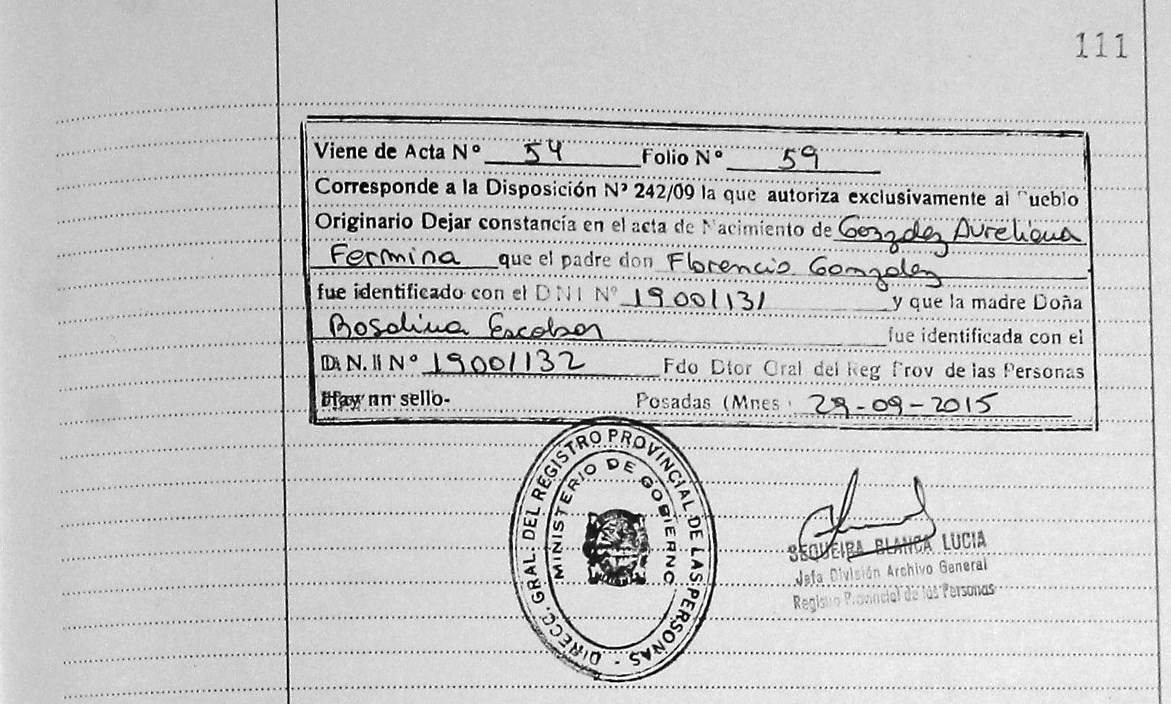 111
Viene de Acta Nº 54 Folio Nº 59
Corresponde a la Disposición Nº 242/09 la que autoriza exclusivamente al Pueblo
Originario Dejar constancia en el acta de Nacimiento de Gonzalez Aureliana
Fermina que el padre don Florencio Gonzalez
fue identificado con el DNI Nº 19001131 y que la madre Doña
Rosalina Escobar fue identificada con el
D.N.I Nº 19001132 Fdo Dtor Gral del Reg Prov de las Personas
Hay un sello- Posadas (Mnes) 29-09-2015
DIRECC. GRAL. DEL REGISTRO PROVINCIAL DE LAS PERSONAS -
MINISTERIO DE GOBIERNO
SEQUEIRA BLANCA LUCIA
Jefa División Archivo General
Registro Provincial de las Personas